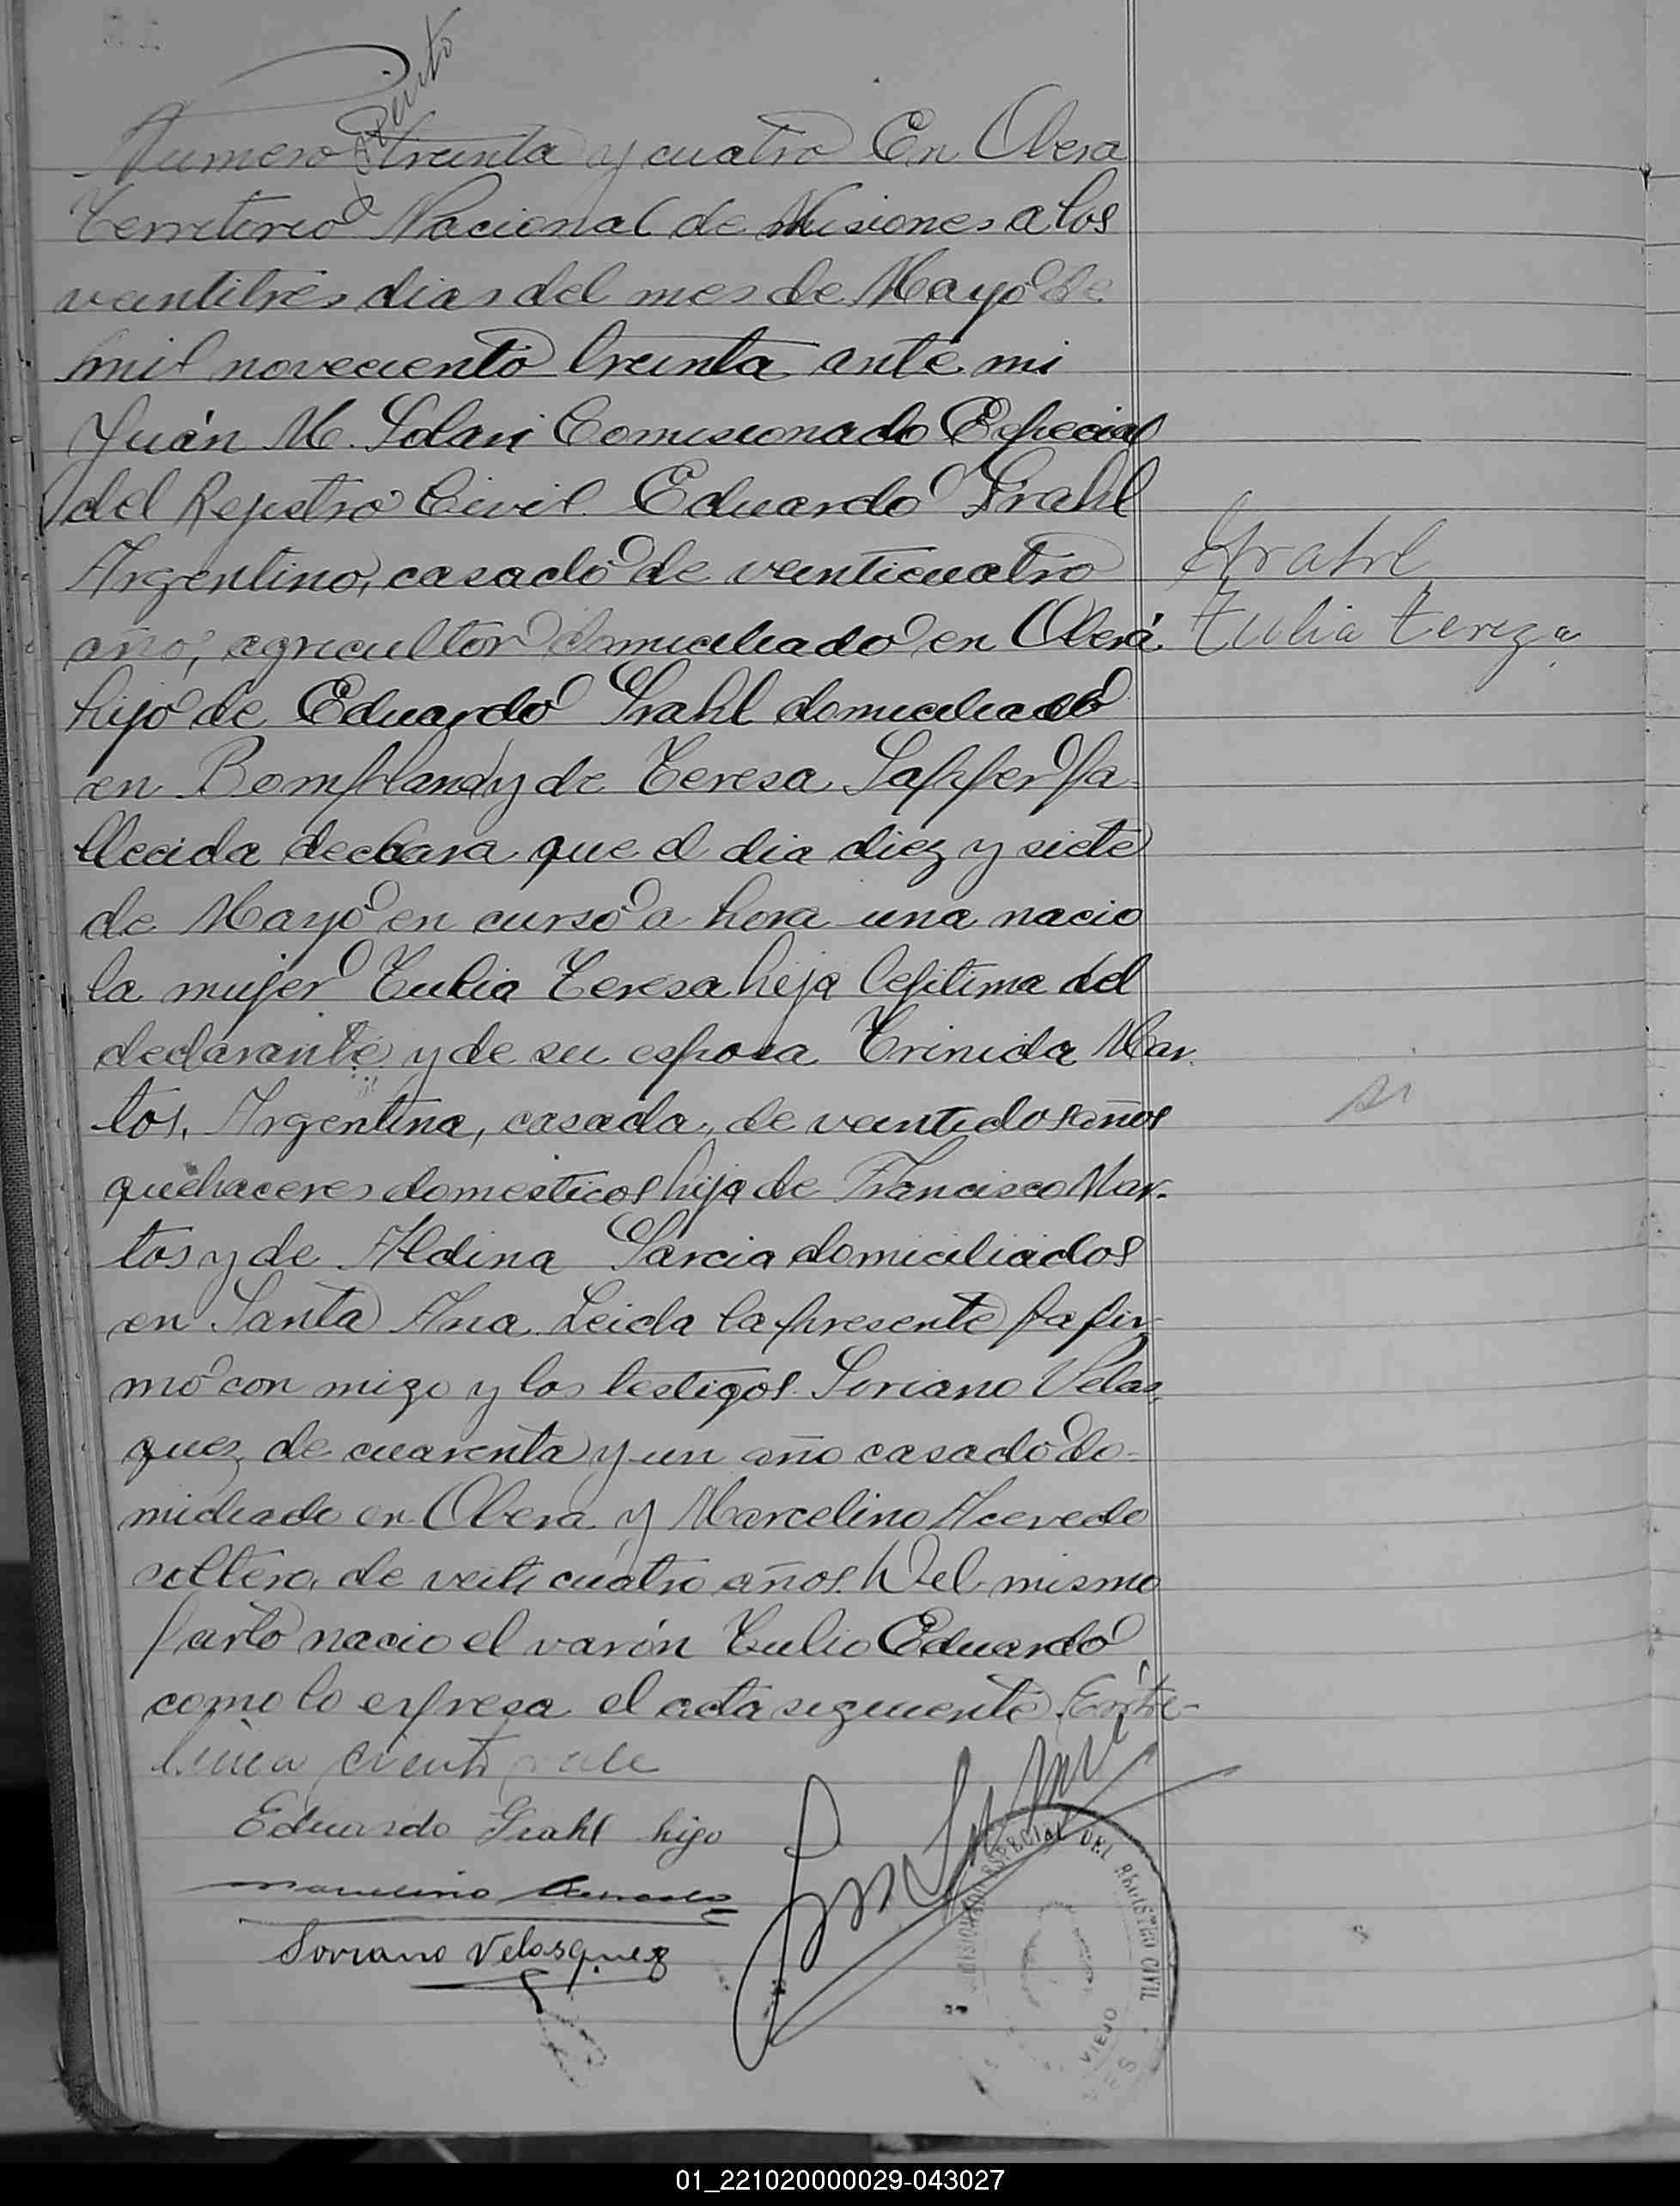 Numero ciento treinta y cuatro En Obera
Territorio Nacional de Misiones a los
veintitres dias del mes de Mayo de
mil novecento treinta ante mi
Juán M. Solari Comisionado Especial
del Registro Civil. Eduardo Grahl
Argentino, casado de veinticuatro
año, agricultor domiciliado en Oberá
hijo de Eduardo Grahl domiciliado
en Bompland y de Teresa Sapper fa-
llecida declara que el dia diez y siete
de Mayo en curso a hora una nacio
la mujer Tulia Teresa hija legitima del
declarante y de su esposa Trinida Mar-
tos, Argentina, casada, de veintidos años
quehaceres domesticos hija de Francisco Mar-
tos y de Aldina Garcia domiciliados
en Santa Ana. Leida la presente la fir-
mó con migo y los testigos Soriano Velas-
quez de cuarenta y un año casado do-
miciliado en Obera y Marcelino Acevedo
soltero, de veiticuatro años. Del mismo
parto nacio el varón Tulio Eduardo
como lo expresa el acta siguiente. Entre-
linea ciento vale
Grahl
Tulia Tereza
si
Eduardo Grahl hijo
Marcelino Acevedo
Soriano Velasquez
COMISIONADO ESPECIAL DEL REGISTRO CIVIL
VIEJO
01_221020000029-043027